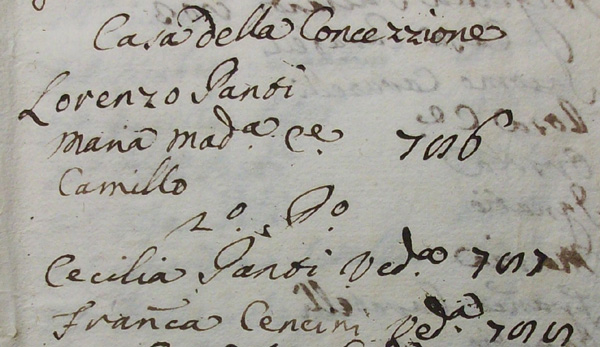 Casa della Concezzione
Lorenzo Panti
Maria Mad.a C.e
Camillo
2.o P.o
Cecilia Panti Ved.a
Fran.ca Cencini Ved.a